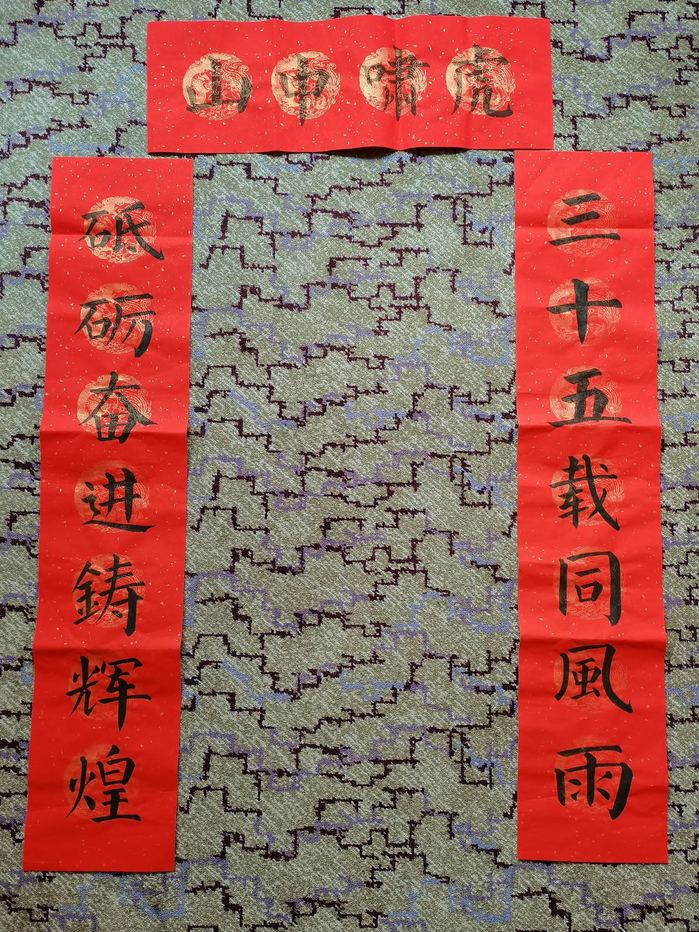 虎嘯申山
三十五载同風雨
砥砺奋进鋳辉煌